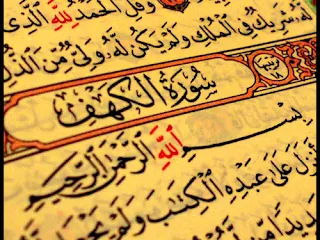 وَقُلِ الْحَمْدُ لِلَّهِ الَّذِي
لَهُ شَرِيكٌ فِي الْمُلْكِ وَلَمْ يَكُن لَّهُ وَلِيٌّ مِّنَ الذُّلِّ
سُورَةُ الْكَهْفِ
بِسْمِ اللَّهِ الرَّحْمَٰنِ الرَّحِيمِ
أَنزَلَ عَلَىٰ عَبْدِهِ الْكِتَٰبَ وَلَمْ